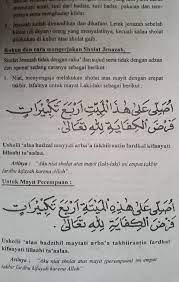 Jenazah sudah dimandikan dan dikafani. Letak jenazah sebelah
kiblat di depan orang yang menyalatinya, kecuali kalau sholat
dilakukan di kubur atau sholat gaib.
Rukun dan cara mengerjakan Sholat Jenazah.
Sholat Jenazah tidak dengan ruku' dan sujud serta tidak dengan adzan
dan
1. Niat, menyengaja melakukan sholat atas mayit dengan empat
takbir, lafalnya untuk mayat laki-laki sebagai berikut :
أُصَلِّى عَلَى هٰذَا الْمَيِّتِ اَرْبَعَ تَكْبِيْرَاتٍ
فَرْضَ الْكِفَايَةِ لِلّٰهِ تَعَالَى.
Ushollii 'alaa haadzal mayyiti arba'a takbiraatin fardhal kifaayati
lillaahi ta'aalaa.
Artinya : "Aku niat sholat atas mayit (laki-laki) ini empat takbir
fardhu kifayah karena Allah"
Untuk Mayat Perempuan :
أُصَلِّى عَلَى هٰذِهِ الْمَيِّتَةِ اَرْبَعَ تَكْبِيْرَاتٍ
فَرْضَ الْكِفَايَةِ لِلّٰهِ تَعَالَى.
Ushollii 'alaa haadzihil mayyitati arba'a takbiraatin fardhal
kifaayati lillaahi ta'aalaa.
Artinya : "Aku niat sholat atas mayit (perempuan) ini empat
takbir fardhu kifayah karena Allah"